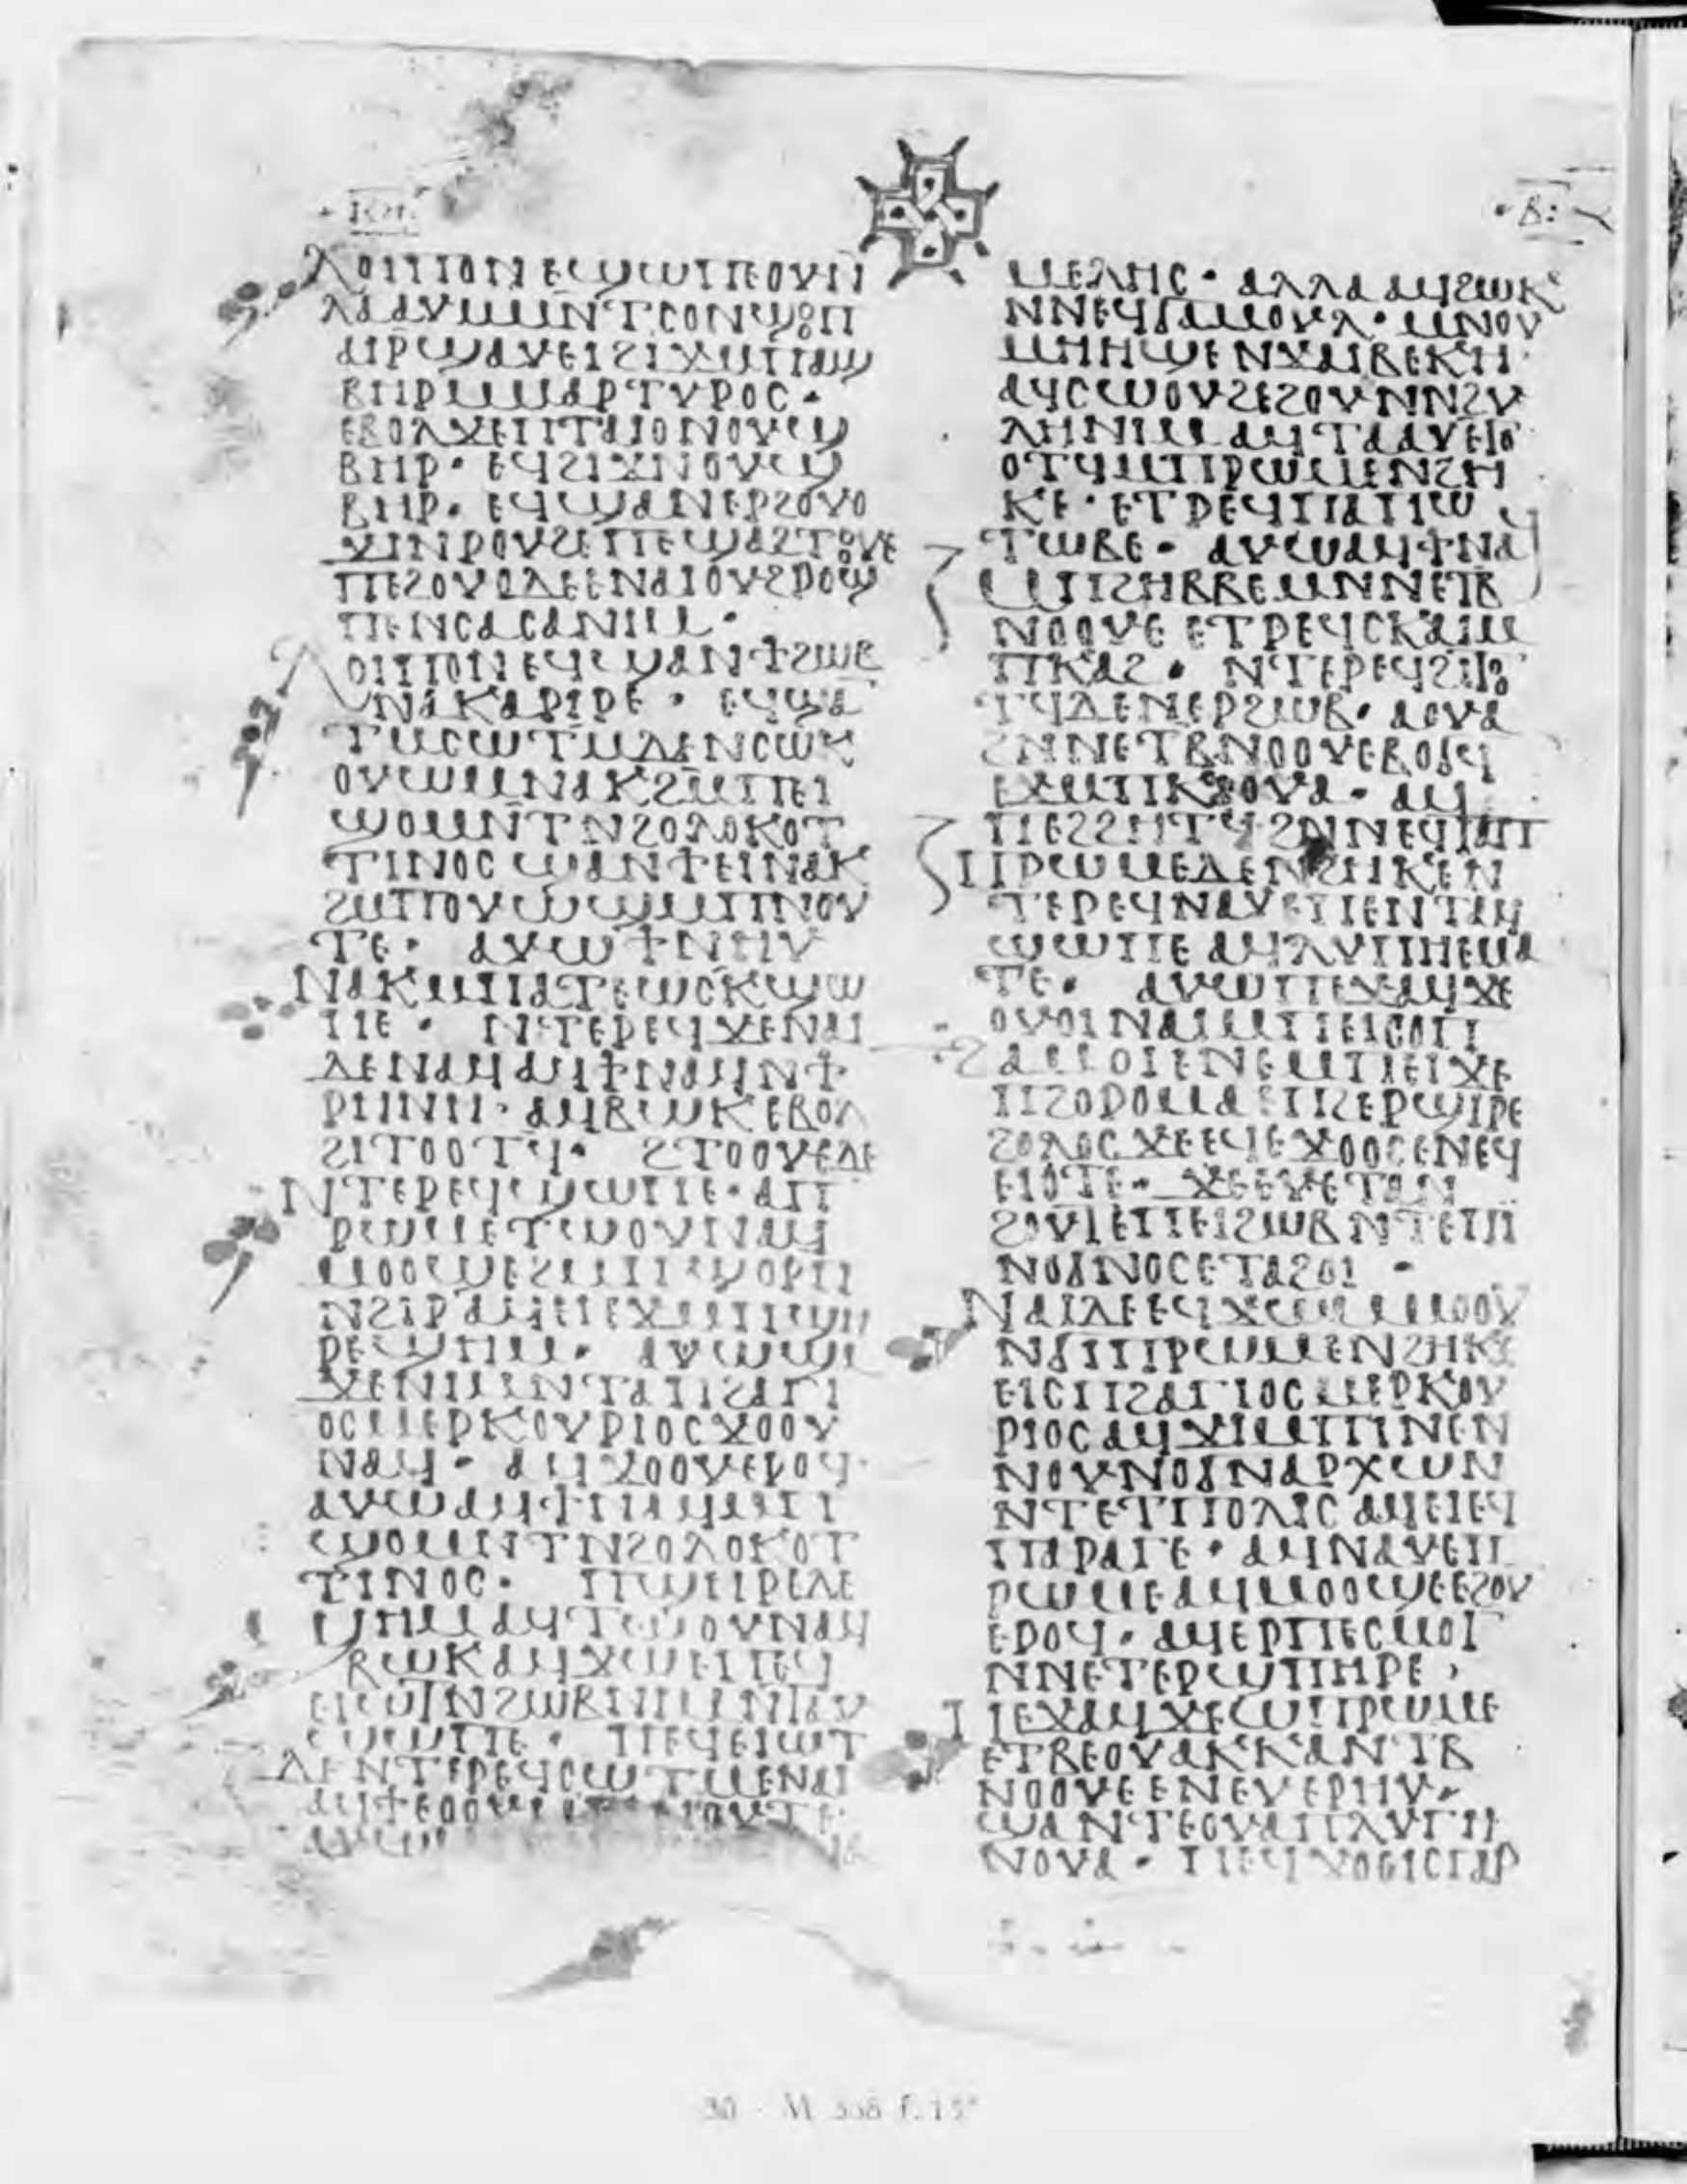 ⲗⲟⲓⲡⲟⲛ ⲉϣⲱⲡⲉ ⲟⲩⲛ
ⲗⲁⲁⲩ ⲙⲙⲛⲧⲥⲟⲛ ϣⲟⲟⲡ
ⲃⲏⲣ ⲙⲙⲁⲣⲧⲩⲣⲟⲥ·
ⲉⲃⲟⲗ ϫⲉ ⲡⲧⲁⲓⲟ ⲛⲟⲩϣ
ⲃⲏⲣ· ⲉϥϩⲓϫⲛ ⲟⲩϣ
ⲃⲏⲣ· ⲉϥϣⲁⲛⲉⲣϩⲟⲩⲟ
ϫⲓⲛ ⲣⲟⲩϩⲉ ⲡⲉϣⲁϩⲧⲟⲟⲩⲉ
ⲡⲉϩⲟⲩⲟ ⲇⲉ ⲉⲛⲁⲓ ⲟⲩϩⲣⲟϣ
ⲡⲉ ⲛⲥⲁ ⲥⲁ ⲛⲓⲙ·
ⲗⲟⲓⲡⲟⲛ ⲉϥϣⲁⲛϯϩⲱⲃ
ⲛⲁⲕ ⲁⲣⲓⲣⲉ· ⲉϥϣⲁ
ⲧⲙⲥⲱⲧⲙ ⲇⲉ ⲛⲥⲱⲕ
ⲟⲩⲱⲙ ⲛⲁⲕ ϩⲙ ⲡⲉⲓ
ϣⲟⲙⲛⲧ ⲛϩⲟⲗⲟⲕⲟⲧ
ⲧⲓⲛⲟⲥ ϣⲁⲛϯⲉⲓ ⲛⲁⲕ
ϩⲙ ⲡⲟⲩⲱϣ ⲙⲡⲛⲟⲩ
ⲧⲉ· ⲁⲩⲱ ϯⲛⲏⲩ
ⲛⲁⲕ ⲙⲡⲁⲧⲉ ⲱⲥⲕ ϣⲱ
ⲡⲉ· ⲛⲧⲉⲣⲉϥϫⲉ ⲛⲁⲓ
ⲇⲉ ⲛⲁϥ ⲁϥϯ ⲛⲁϥ ⲛϯ
ⲣⲏⲛⲏ· ⲁϥⲃⲱⲕ ⲉⲃⲟⲗ
ϩⲓⲧⲟⲟⲧϥ· ϩⲧⲟⲟⲩⲉ ⲇⲉ
ⲛⲧⲉⲣⲉϥϣⲱⲡⲉ· ⲁⲡ
ⲣⲱⲙⲉ ⲧⲱⲟⲩⲛ ⲁϥ
ⲙⲟⲟϣⲉ ϩⲙ ⲡϣⲟⲣⲡ
ⲣⲉ ϣⲏⲙ· ⲁⲩⲱ
ϫⲉ ⲛⲓⲙ ⲛⲧⲁ ⲡϩⲁⲅⲓ
ⲟⲥ ⲙⲉⲣⲕⲟⲩⲣⲓⲟⲥ ϫⲟⲟⲩ
ⲛⲁϥ· ⲁϥϫⲟⲟⲩ ⲉⲣⲟϥ·
ⲁⲩⲱ ⲁϥϯ ⲛⲁϥ ⲙⲡ
ϣⲟⲙⲛⲧ ⲛϩⲟⲗⲟⲕⲟⲧ
ⲧⲓⲛⲟⲥ· ⲡϣⲏⲣⲉ ⲇⲉ
ϣⲏⲙ ⲁϥⲧⲱⲟⲩⲛ ⲁϥ
ⲃⲱⲕ ⲁϥϫⲱ ⲉⲡⲉϥ
ⲉⲓⲱⲧ ⲛϩⲱⲃ ⲛⲓⲙ ⲛⲧⲁⲩ
ϣⲱⲡⲉ· ⲡⲉϥⲉⲓⲱⲧ
ⲇⲉ ⲛⲧⲉⲣⲉϥⲥⲱⲧⲙ ⲉⲛⲁⲓ
ⲁϥϯⲉⲟⲟⲩ ⲛⲟⲩⲧⲉ
ⲁⲩⲱ
ⲙⲉⲗⲏⲥ· ⲁⲗⲗⲁ ⲁϥϩⲱⲕ
ⲛⲛⲉϥϭⲁⲙⲟⲩⲗ· ⲙⲛ ⲟⲩ
ⲙⲏⲏϣⲉ ⲛϫⲁⲓⲃⲉⲕⲏ·
ⲁϥⲥⲱⲟⲩϩ ⲉϩⲟⲩⲛ ⲛϩⲩ
ⲗⲏ ⲛⲓⲙ ⲁϥⲧⲁⲁⲩ ⲉⲧⲟ
ⲟⲧϥ ⲙⲡⲣⲱⲙⲉ ⲛϩⲏ
ⲕⲉ· ⲉⲧⲣⲉϥⲡⲁⲡⲓⲱ
ⲧⲱⲃⲉ· ⲁⲩⲱ ⲁϥϯ ⲛⲁϥ
ⲙⲡϩⲏⲃⲃⲉ ⲙⲛ ⲛⲉⲧⲃ
ⲛⲟⲟⲩⲉ ⲉⲧⲣⲉϥⲥⲕⲁⲓ ⲙ
ⲡⲕⲁϩ· ⲛⲧⲉⲣⲉϥϩⲓⲧⲟ
ⲧϥ ⲇⲉ ⲛⲉⲣϩⲱⲃ· ⲁⲟⲩⲁ
ϩⲛ ⲛⲉⲧⲃⲛⲟⲟⲩⲉ ⲃⲟϭϥ
ⲉϫⲙ ⲡⲕⲉⲟⲩⲁ· ⲁϥ
ⲡⲉϩ ϩⲏⲧϥ ϩⲛ ⲛⲉϥⲧⲁⲡ
ⲡⲣⲱⲙⲉ ⲇⲉ ⲛϩⲏⲕⲉ ⲛ
ⲧⲉⲣⲉϥⲛⲁⲩ ⲉⲡⲉⲛⲧⲁϥ
ϣⲱⲡⲉ ⲁϥⲗⲩⲡⲏ ⲉⲙⲁ
ⲧⲉ· ⲁⲩⲱ ⲡⲉϫⲁϥ ϫⲉ
ⲟⲩⲟⲓ ⲛⲁⲓ ⲙⲡⲉⲓⲥⲟⲡ
ϩⲁⲙⲟⲓ ⲉⲛⲉ ⲙⲡⲉⲓϫⲉ
ⲡϩⲟⲣⲟⲙⲁ ⲉⲡϩⲉⲣϣⲓⲣⲉ
ϩⲟⲗⲟⲥ ϫⲉ ⲉϥⲉϫⲟⲟⲥ ⲉⲛⲉϥ
ⲉⲓⲟⲧⲉ· ϫⲉ ⲉⲩⲉⲧⲁⲛ
ϩⲟⲩⲧ ⲉⲡⲉⲓϩⲱⲃ ⲛⲧⲉ ⲡⲓ
ⲛⲟϭ ⲛⲟⲥⲉ ⲧⲁϩⲟⲓ·
ⲛⲁⲓ ⲇⲉ ⲉϥϫⲱ ⲙⲙⲟⲟⲩ
ⲛϭⲓ ⲡⲣⲱⲙⲉ ⲛϩⲏⲕⲉ
ⲉⲓⲥ ⲡϩⲁⲅⲓⲟⲥ ⲙⲉⲣⲕⲟⲩ
ⲣⲓⲟⲥ ⲁϥϫⲓ ⲙⲡⲓⲛⲉ ⲛ
ⲛⲟⲩⲛⲟϭ ⲛⲁⲣⲭⲱⲛ
ⲛⲧⲉ ⲧⲡⲟⲗⲓⲥ ⲁϥⲉⲓ ⲉϥ
ⲡⲁⲣⲁⲅⲉ· ⲁϥⲛⲁⲩ ⲉⲡ
ⲣⲱⲙⲉ ⲁϥⲙⲟⲟϣⲉ ⲉϩⲟⲩ
ⲉⲣⲟϥ· ⲁϥⲉⲣ ⲡⲉⲥⲙⲟⲧ
ⲛⲛⲉⲧⲉⲣϣⲡⲏⲣⲉ·
ⲡⲉϫⲁϥ ϫⲉ ⲱ ⲡⲣⲱⲙⲉ
ⲉⲧⲃⲉ ⲟⲩ ⲁⲕⲕⲁ ⲛⲧⲃ
ⲛⲟⲟⲩⲉ ⲉⲛⲉⲩⲉⲣⲏⲩ·
ϣⲁⲛⲧⲉ ⲟⲩⲁ ⲡⲗⲩⲅⲏ
ⲛⲟⲩⲁ· ⲡⲉϥϫⲟⲉⲓⲥ ⲅⲁⲣ